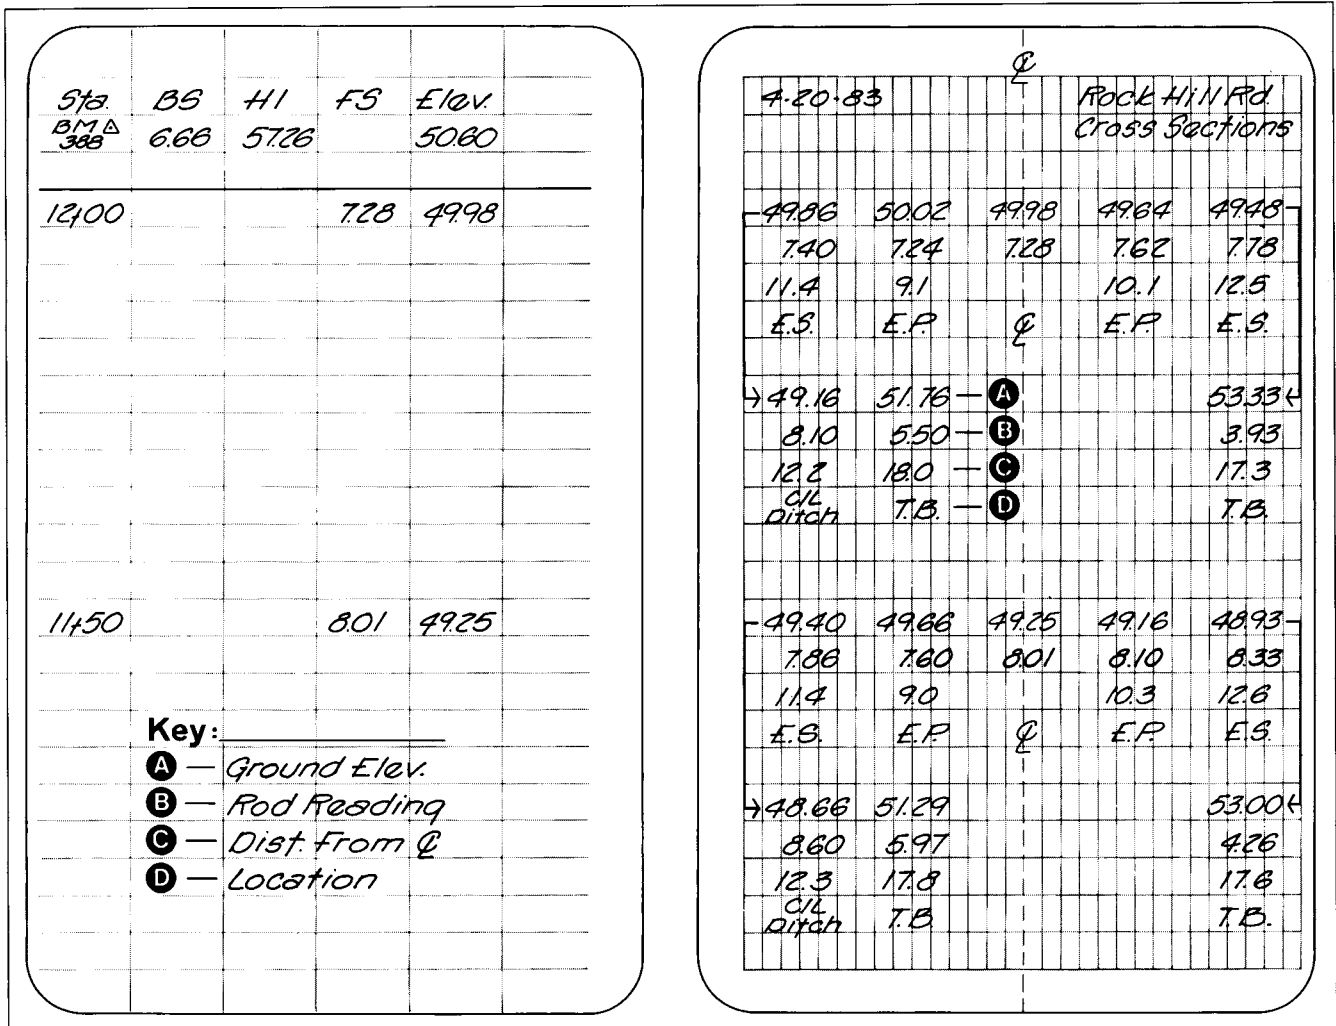 Sta. BS HI FS Elev.
BM △ 388 6.66 57.26 50.60
12+00 7.28 49.98
11+50 8.01 49.25
Key:
A — Ground Elev.
B — Rod Reading
C — Dist. From ℄
D — Location
℄
4·20·83 Rock Hill Rd.
Cross Sections
49.86 50.02 49.98 49.64 49.48
7.40 7.24 7.28 7.62 7.78
11.4 9.1 10.1 12.5
E.S. E.P. ℄ E.P. E.S.
→49.16 51.76 — A 53.33←
8.10 5.50 — B 3.93
12.2 18.0 — C 17.3
C/L Ditch T.B. — D T.B.
49.40 49.66 49.25 49.16 48.93
7.86 7.60 8.01 8.10 8.33
11.4 9.0 10.3 12.6
E.S. E.P. ℄ E.P. E.S.
→48.66 51.29 53.00←
8.60 5.97 4.26
12.3 17.8 17.6
C/L Ditch T.B. T.B.